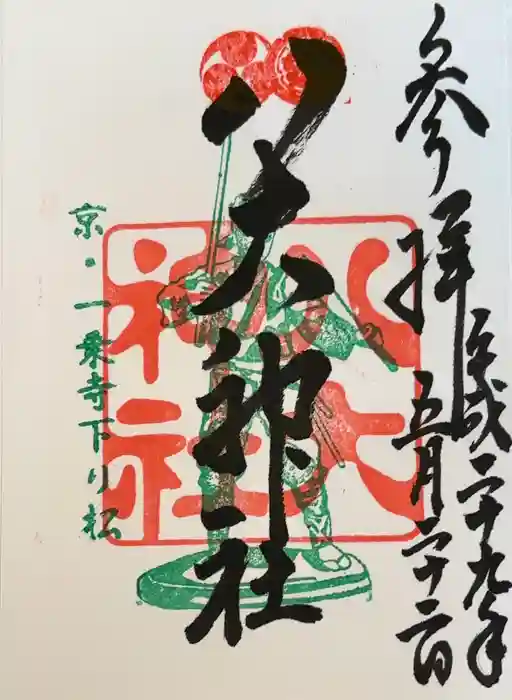 参拝
平成二十九年
五月二十二日
八大神社
八大
神社
京・一乗寺下り松